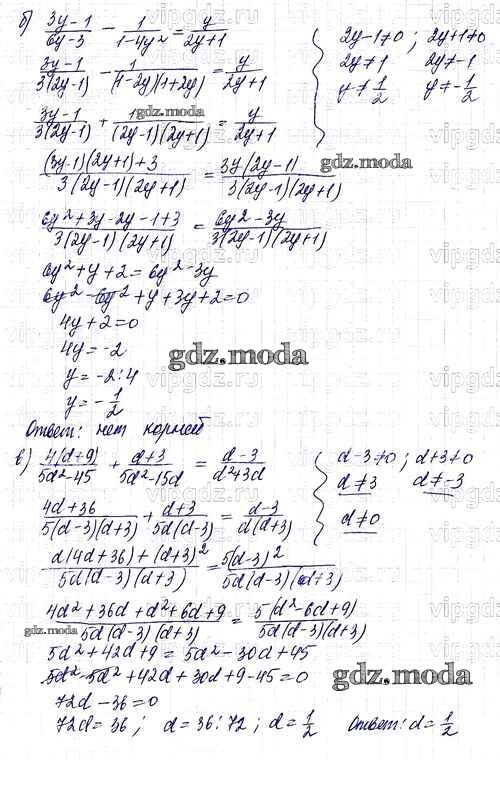 б) (3y-1)/(6y-3) - 1/(1-4y²) = y/(2y+1) { 2y-1≠0 ; 2y+1≠0
(3y-1)/(3(2y-1)) - 1/((1-2y)(1+2y)) = y/(2y+1) 2y≠1 2y≠-1
y≠1/2 y≠-1/2
(3y-1)/(3(2y-1)) + 1/((2y-1)(2y+1)) = y/(2y+1)
gdz.moda
((3y-1)(2y+1)+3)/(3(2y-1)(2y+1)) = 3y(2y-1)/(3(2y-1)(2y+1))
gdz.moda
(6y²+3y-2y-1+3)/(3(2y-1)(2y+1)) = (6y²-3y)/(3(2y-1)(2y+1))
6y²+y+2=6y²-3y
6y²-6y²+y+3y+2=0
4y+2=0
4y=-2
gdz.moda
y=-2:4
y=-1/2
Ответ: нет корней
в) 4(d+9)/(5d²-45) + (d+3)/(5d²-15d) = (d-3)/(d²+3d) { d-3≠0 ; d+3≠0
d≠3 d≠-3
(4d+36)/(5(d-3)(d+3)) + (d+3)/(5d(d-3)) = (d-3)/(d(d+3)) d≠0
(d(4d+36)+(d+3)²)/(5d(d-3)(d+3)) = 5(d-3)²/(5d(d-3)(d+3))
(4d²+36d+d²+6d+9)/(5d(d-3)(d+3)) = 5(d²-6d+9)/(5d(d-3)(d+3))
gdz.moda
5d²+42d+9=5d²-30d+45
5d²-5d²+42d+30d+9-45=0
72d-36=0
72d=36; d=36:72; d=1/2 Ответ: d=1/2
vipgdz.ru